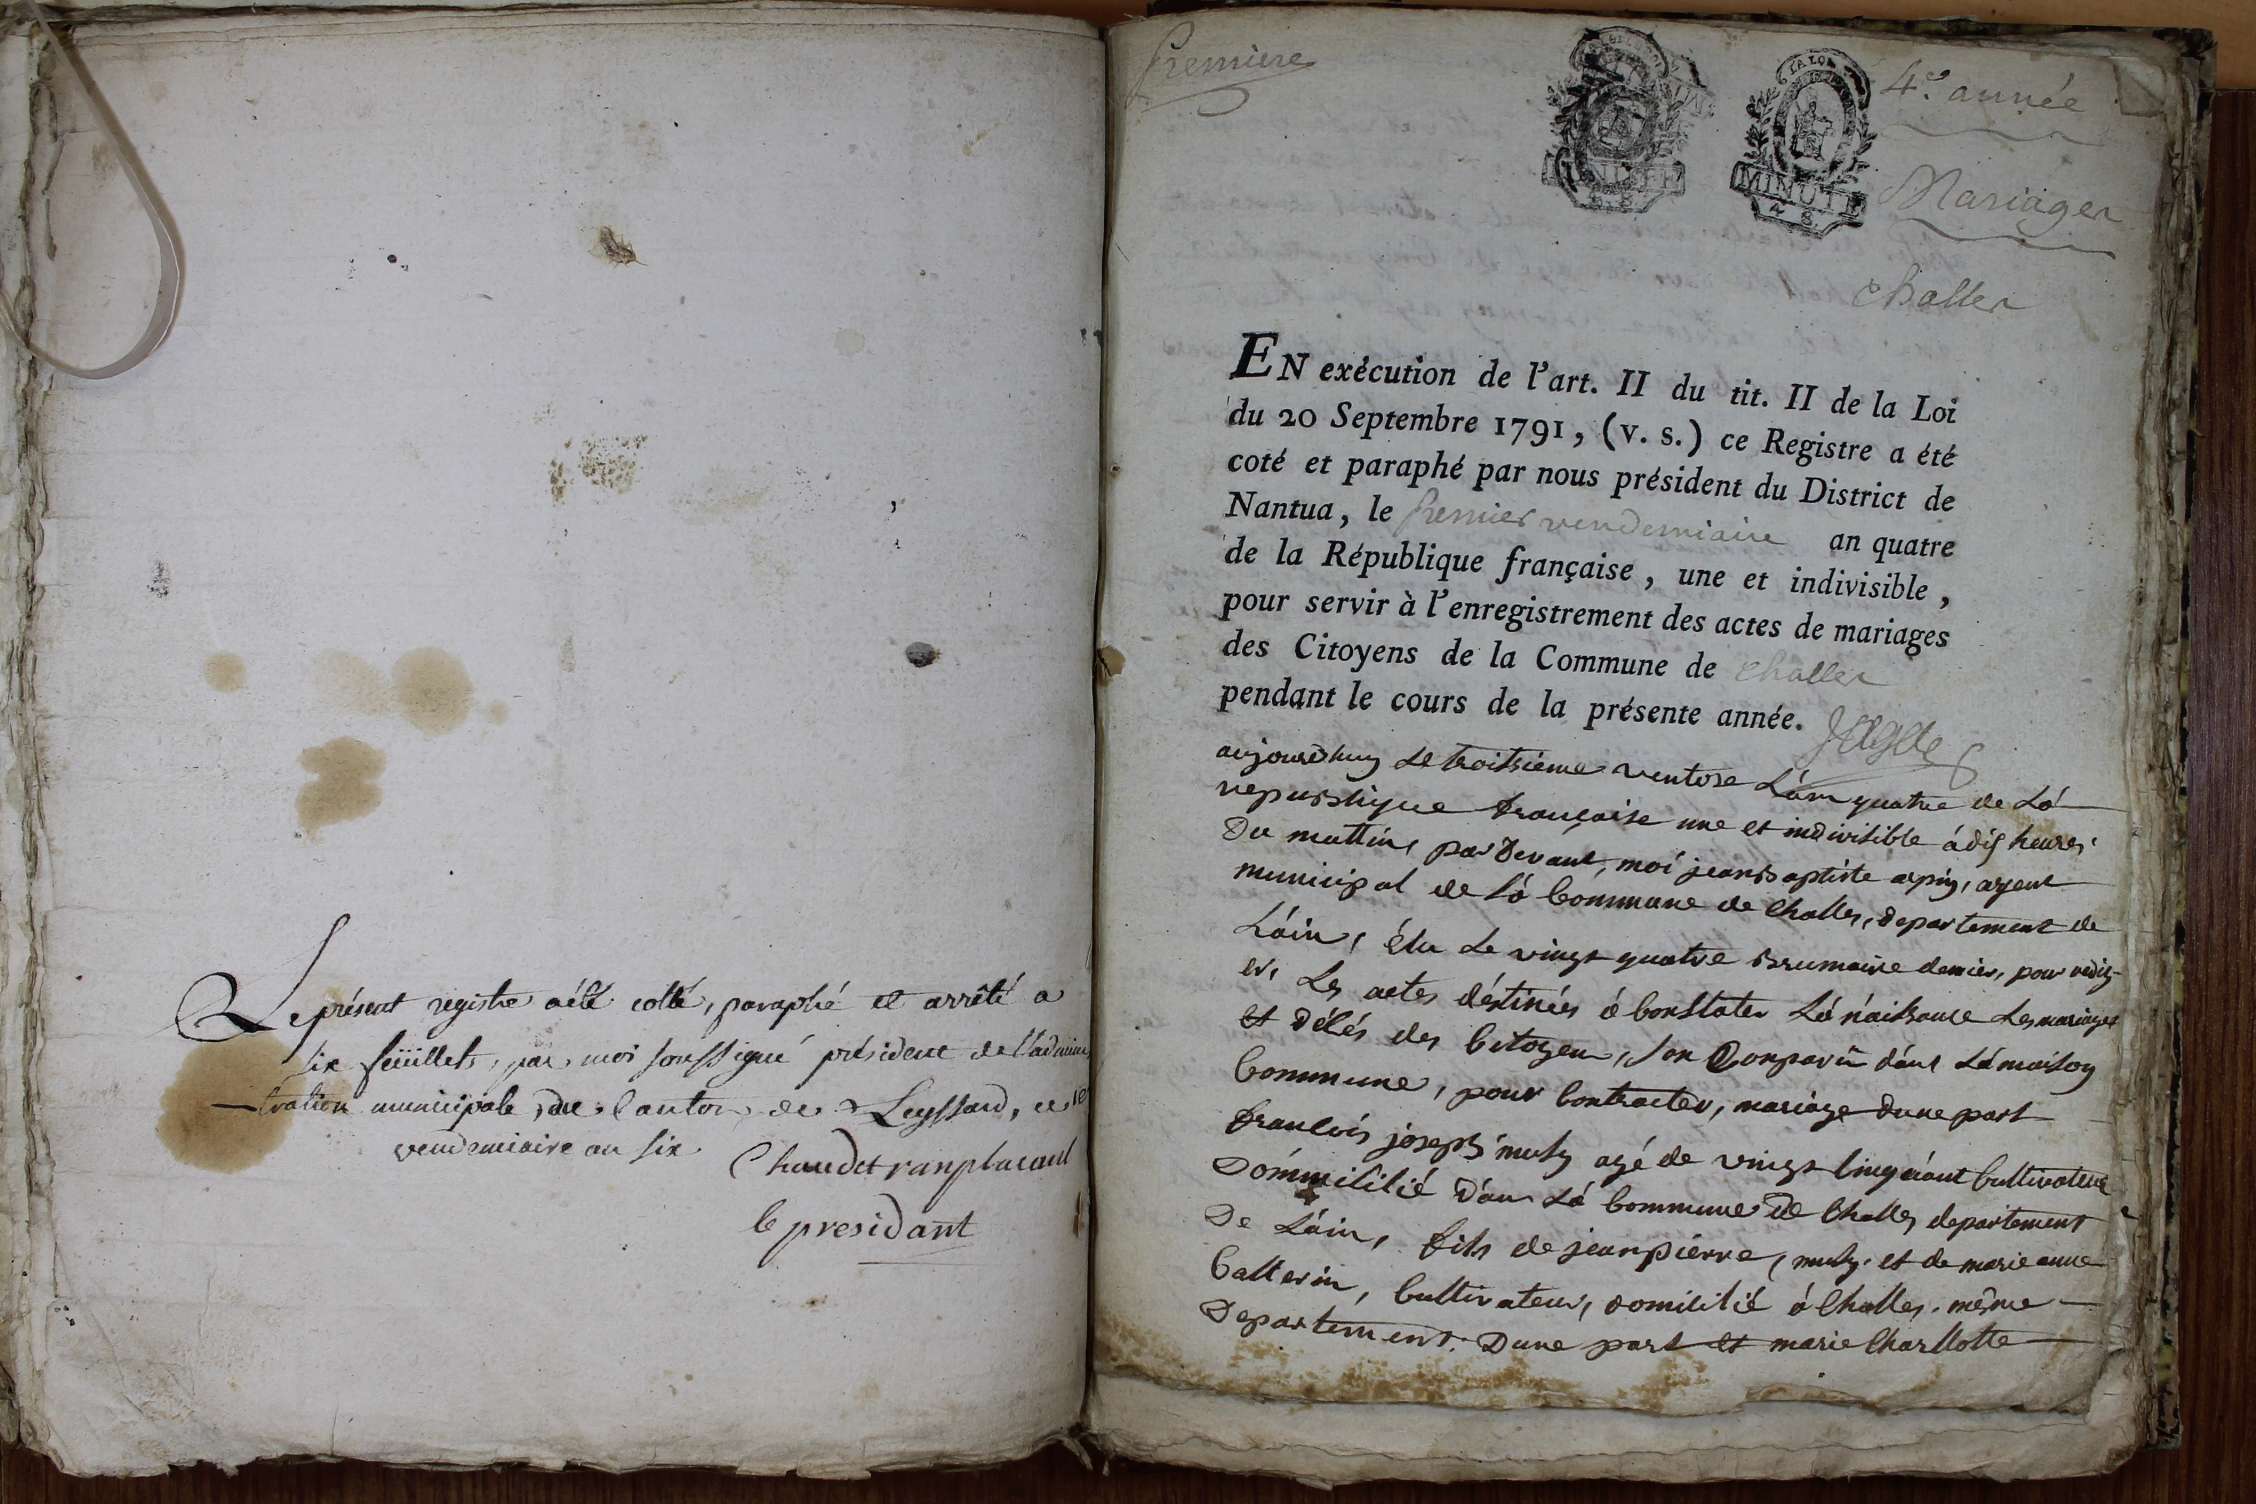 Le présent registre a été cotté, paraphé et arrêté a
six feüillets, par moi soussigné président de l'adminis
-tration municipale du Canton de Leyssard, ce 1er
vendemiaire an six
Chaudet ranplacant
le presidant
Premiere
LA LOI
MINUTE
4 S.
4e. année
Mariages
Challes
EN exécution de l'art. II du tit. II de la Loi
du 20 Septembre 1791, (v. s.) ce Registre a été
coté et paraphé par nous président du District de
Nantua, le premier vendemiaire an quatre
de la République française, une et indivisible,
pour servir à l'enregistrement des actes de mariages
des Citoyens de la Commune de Challes
pendant le cours de la présente année.
aujourdhuy le troitsieme ventose l'an quatre de la
republique française une et indivisible a dix heures
du mattin, par devant, moi jean baptiste arpin, agent
municipal de la Commune de Challes, departement de
L'ain, élu le vingt quatre brumaire dernier, pour redig-
er, les actes déstinées a Constater la naissance les mariages
et décés des Citoyens, son Comparu dans la maison
Commune, pour Contracter, mariage dune part
francois joseph muty agé de vingt Cinq ans Cultivateur
Domicilié dans la Commune de Challes departement
De L'ain, fils de jean pierre, muty et de marie anne
Catterin, Cultivateur, domicilié a Challes, même
Departement. Dune part et marie Charllotte